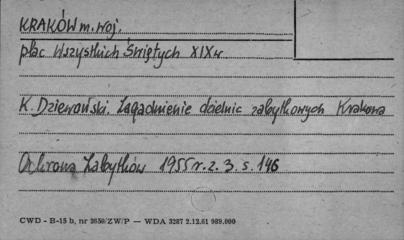 KRAKÓW m. woj.
plac Wszystkich Świętych XIX w.
K. Dziewoński. Zagadnienie dzielnic zabytkowych Krakowa
Ochrona Zabytków 1955 r. z. 3. s. 146
CWD - B-15 b, nr 3650/ZW/P — WDA 3287 2.12.61 989.000